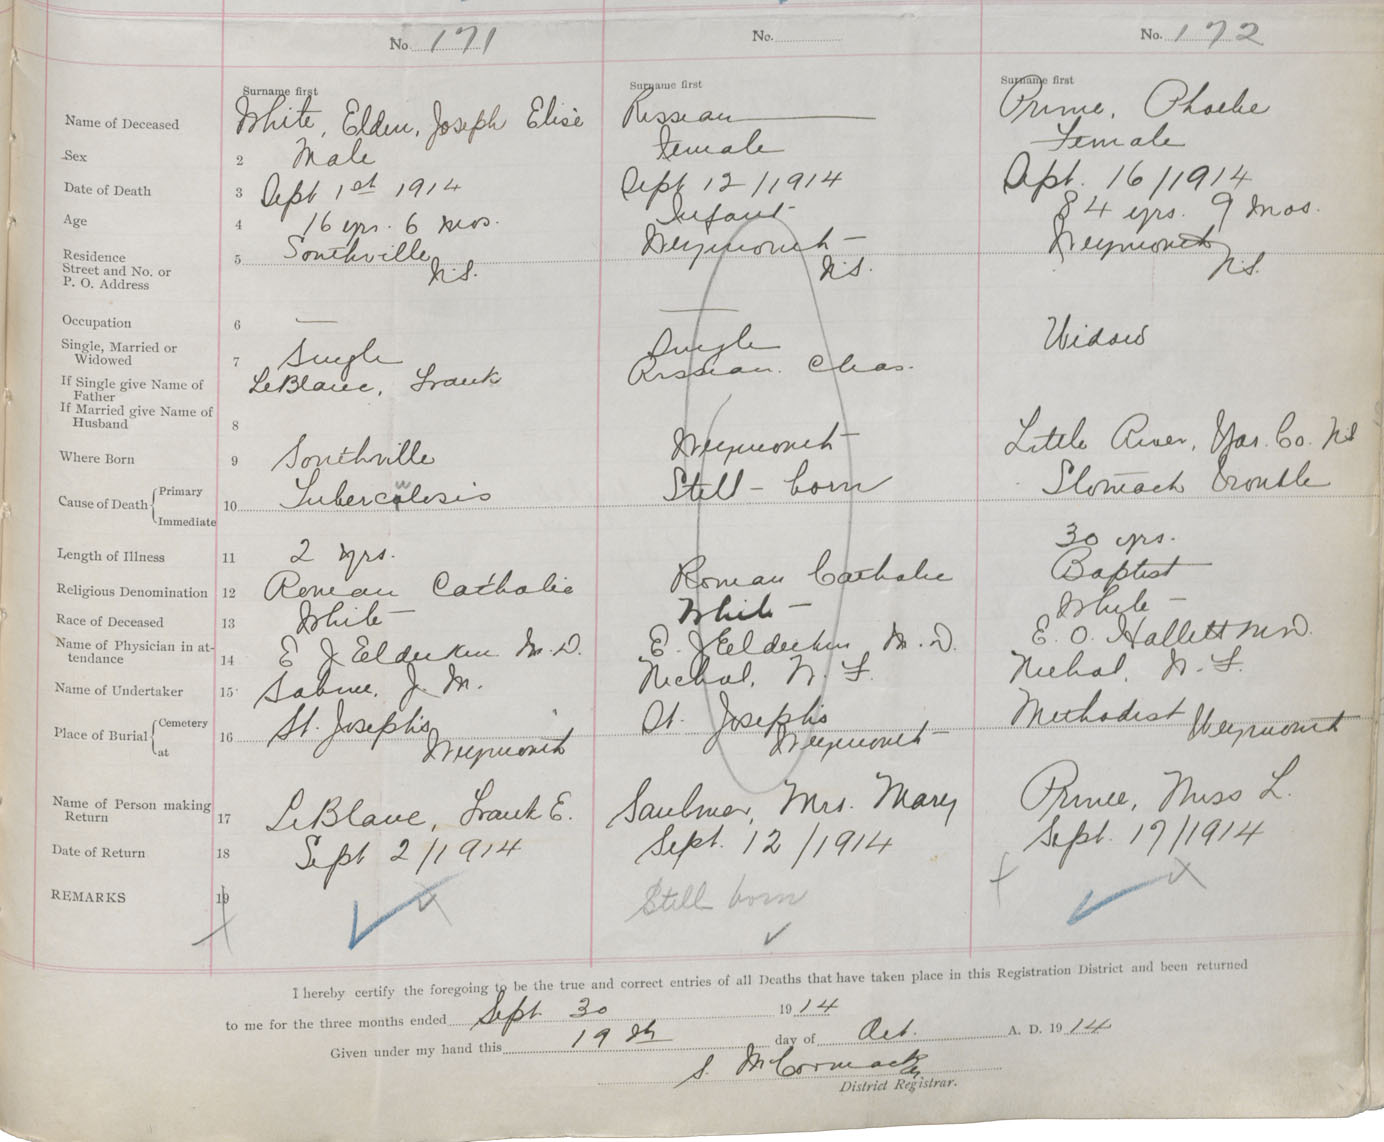 No 171 No. No. 172
Surname first Surname first Surname first
Name of Deceased White, Elden, Joseph Elisé Rissean Prime, Phoebe
Sex 2 Male Female Female
Date of Death 3 Sept 1st 1914 Sept 12/1914 Sept. 16/1914
Age 4 16 yrs. 6 mos. Infant 84 yrs. 9 mos.
Residence
Street and No. or
P. O. Address 5 Southville N.S. Weymouth N.S. Weymouth N.S.
Occupation 6 — —
Single, Married or
Widowed 7 Single Single Widow
If Single give Name of
Father LeBlanc, Frank Rissean. Chas.
If Married give Name of
Husband 8
Where Born 9 Southville Weymouth Little River, Yar. Co. N.S
Cause of Death Primary
Immediate 10 Tuberculosis Still-born Stomach Trouble
Length of Illness 11 2 yrs. 30 yrs.
Religious Denomination 12 Roman Catholic Roman Catholic Baptist
Race of Deceased 13 White White White
Name of Physician in at-
tendance 14 E J Elderkin M.D. E. J Elderkin M.D. E. O. Hallett M.D.
Name of Undertaker 15 Sabine, J. M. Nichol, N. F. Nichol, N. F.
Place of Burial Cemetery
at 16 St. Joseph's Weymouth St. Joseph's Weymouth Methodist Weymouth
Name of Person making
Return 17 LeBlanc, Frank E. Saulnier, Mrs. Mary Prime, Miss L.
Date of Return 18 Sept 2/1914 Sept. 12/1914 Sept. 17/1914
REMARKS 19 Still born
I hereby certify the foregoing to be the true and correct entries of all Deaths that have taken place in this Registration District and been returned
to me for the three months ended Sept 30 1914
Given under my hand this 19th day of Oct. A. D. 1914
S. McCormack
District Registrar.